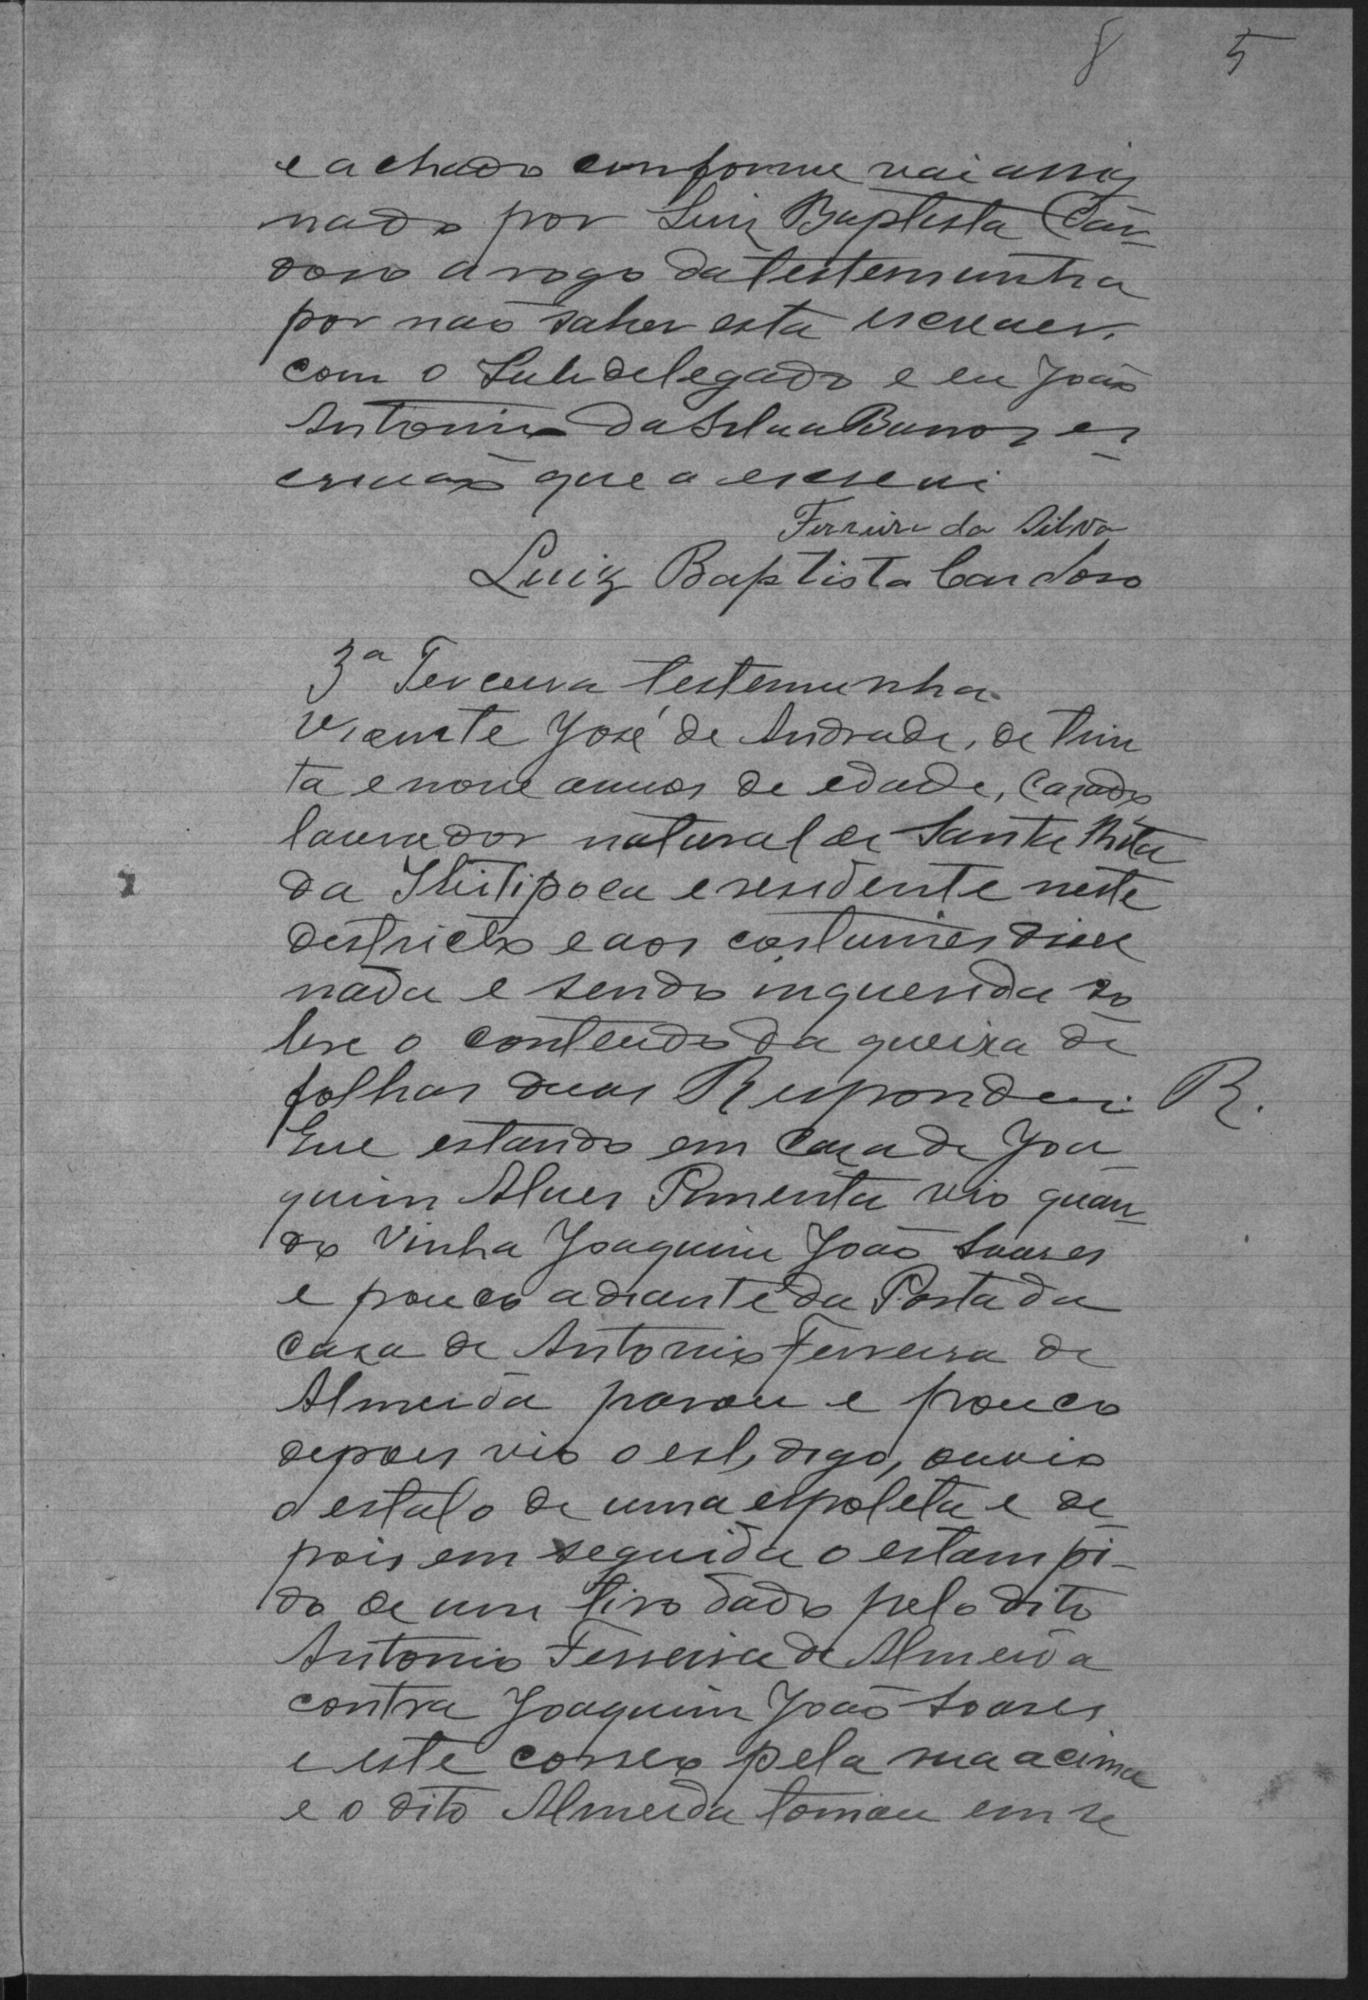 8 5
e achado conforme vai assig
nado por Luiz Baptista Car-
doso a rogo da testemunha
por não saber esta escrever,
com o Subdelegado e eu João
Antonio da Silva es
crivão que o escrevi
Ferreira da Silva
Luiz Baptista Cardoso
3ª Terceira testemunha
Vicente José de Andrade, de trin
ta e nove annos de edade, casado
lavrador natural de Santa Rita
da Ibitipoca e residente neste
districto e aos costumes disse
nada e sendo inquerida so
bre o conteudo da queixa de
folhas duas Respondeu: R.
Que estando em casa de Joa
quim Alves Pimenta vio quan-
do vinha Joaquim João Soares
e pouco adiante da Porta da
casa de Antonio Ferreira de
Almeida parou e pouco
depois vio o est, digo, ouvio
o estalo de uma espoleta e de
pois em seguida o estampi-
do de um tiro dado pelo dito
Antonio Ferreira de Almeida
contra Joaquim João Soares
e este correo pela rua acima
e o dito Almeida tomou em se